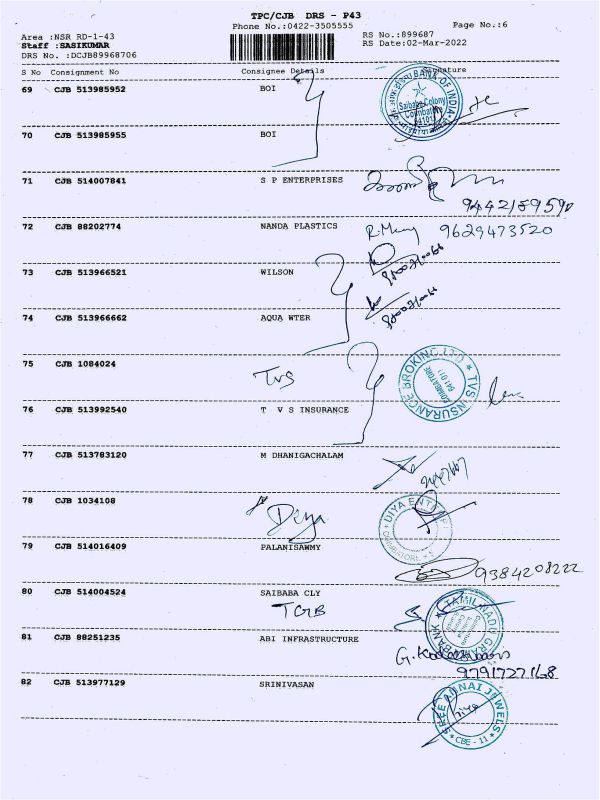 TPC/CJB DRS - P43
Phone No.:0422-3505555 Page No.:6
Area :NSR RD-1-43 RS No.:899687
Staff :SASIKUMAR RS Date:02-Mar-2022
DRS No. :DCJB89968706
S No Consignment No Consignee Details Signature
69 CJB 513985952 BOI
BANK OF INDIA
Saibaba Colony
Coimbatore
70 CJB 513985955 BOI
71 CJB 514007841 S P ENTERPRISES
9442159590
72 CJB 88202774 NANDA PLASTICS 9629473520
73 CJB 513966521 WILSON
74 CJB 513966662 AQUA WTER
75 CJB 1084024
TVS
TVS INSURANCE BROKING
COIMBATORE
641 011
76 CJB 513992540 T V S INSURANCE
77 CJB 513783120 M DHANIGACHALAM
78 CJB 1034108
Diya
DIYA
79 CJB 514016409 PALANISAWMY
9384208222
80 CJB 514004524 SAIBABA CLY
TGB
TAMIL NADU GRAMA BANK
81 CJB 88251235 ABI INFRASTRUCTURE
82 CJB 513977129 SRINIVASAN
SREE ANNAI JEWELS
CBE - 11